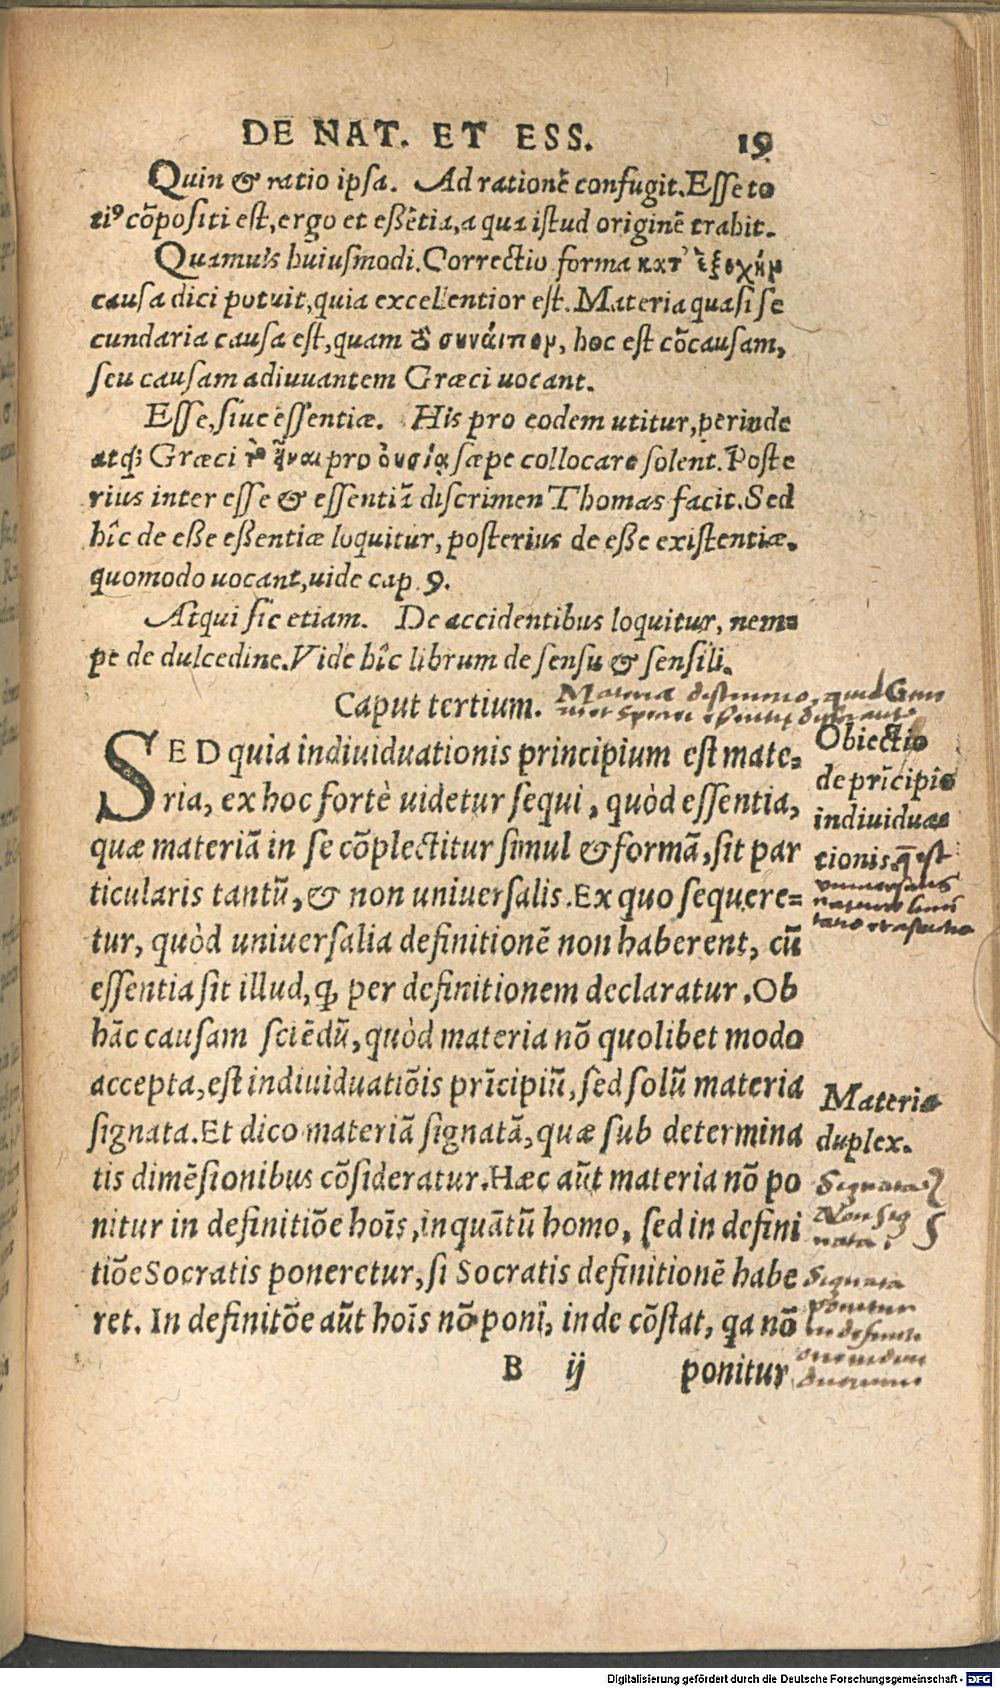 DE NAT. ET ESS. 19
Quin & ratio ipsa. Ad rationẽ confugit. Esse to
tiꝰ cõpositi est, ergo et eßẽtia, a qua istud originẽ trahit.
Quamuis huiusmodi. Correctio forma κατ' ἐξοχὴν
causa dici potuit, quia excellentior est. Materia quasi se
cundaria causa est, quam τὸ συναίτιον, hoc est cõcausam,
seu causam adiuuantem Græci uocant.
Esse, siue essentiæ. His pro eodem utitur, perinde
atq; Græci τὸ εἶναι pro οὐσίᾳ sæpe collocare solent. Poste
rius inter esse & essentiã discrimen Thomas facit. Sed
hîc de eße eßentiæ loquitur, posterius de eße existentiæ.
quomodo uocant, uide cap. 9.
Atqui sic etiam. De accidentibus loquitur, nem=
pe de dulcedine. Vide hîc librum de sensu & sensili.
Caput tertium.
SED quia indiuiduationis principium est mate=
ria, ex hoc fortè uidetur sequi, quòd essentia,
quæ materiã in se cõplectitur simul & formã, sit par
ticularis tantũ, & non uniuersalis. Ex quo sequere=
tur, quòd uniuersalia definitionẽ non haberent, cũ
essentia sit illud, q̃ per definitionem declaratur. Ob
hãc causam sciẽdũ, quòd materia nõ quolibet modo
accepta, est indiuiduatiõis prĩcipiũ, sed solũ materia
signata. Et dico materiã signatã, quæ sub determina
tis dimẽsionibus cõsideratur. Hæc aũt materia nõ po
nitur in definitiõe hoĩs, inquãtũ homo, sed in defini
tiõe Socratis poneretur, si Socratis definitionẽ habe
ret. In definitõe aũt hoĩs nõ poni, inde cõstat, qa nõ
B ij ponitur
Obiectio
de prĩcipio
indiuidua=
tionis. q̃ est
Materia
duplex.
Signata
Non sig
nata
Signata
ponitur
in definiti
Digitalisierung gefördert durch die Deutsche Forschungsgemeinschaft - DFG